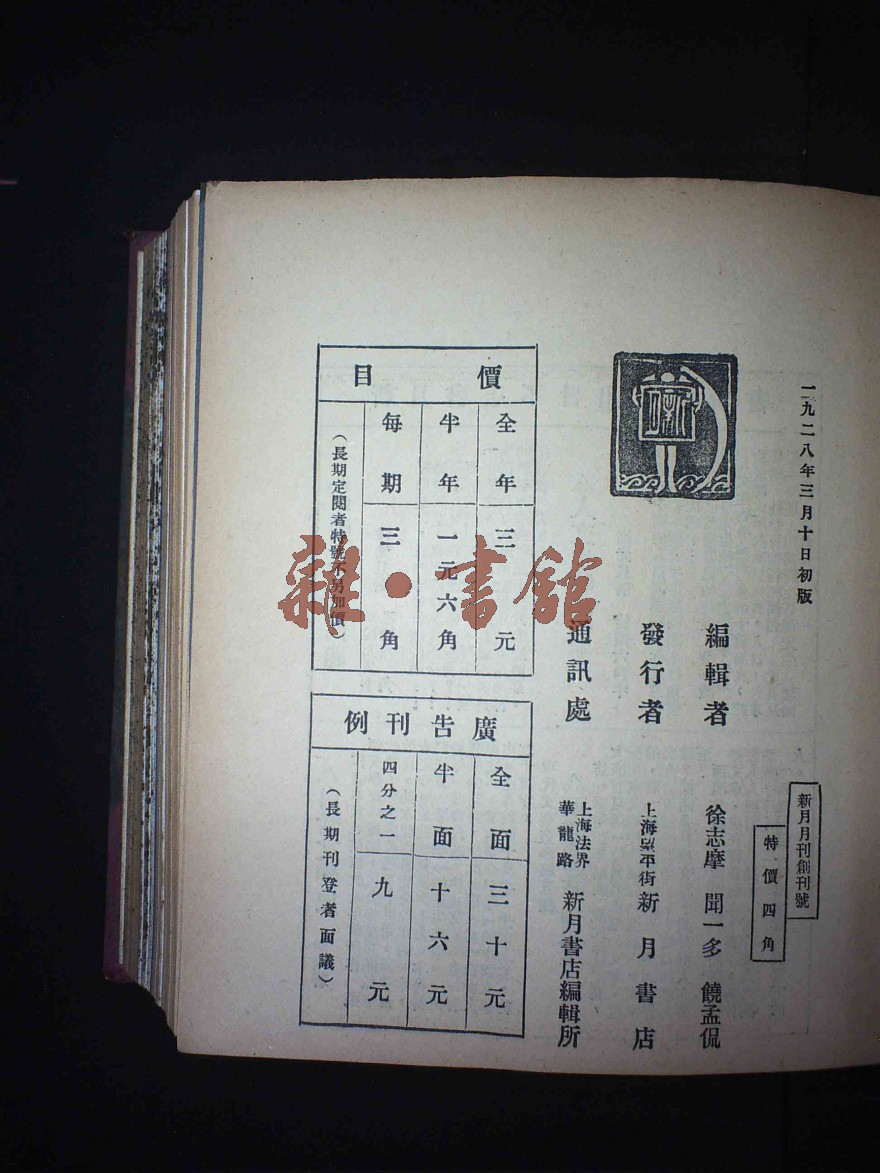 一九二八年三月十日初版
新月月刊創刊號
特價四角
編輯者 徐志摩 聞一多 饒孟侃
發行者 上海望平街 新月書店
通訊處 上海法界華龍路 新月書店編輯所
價目
全年 三元
半年 一元六角
每期 三角
(長期定閱者特號不另加價)
廣告刊例
全面 三十元
半面 十六元
四分之一 九元
(長期刊登者面議)
雜·書館